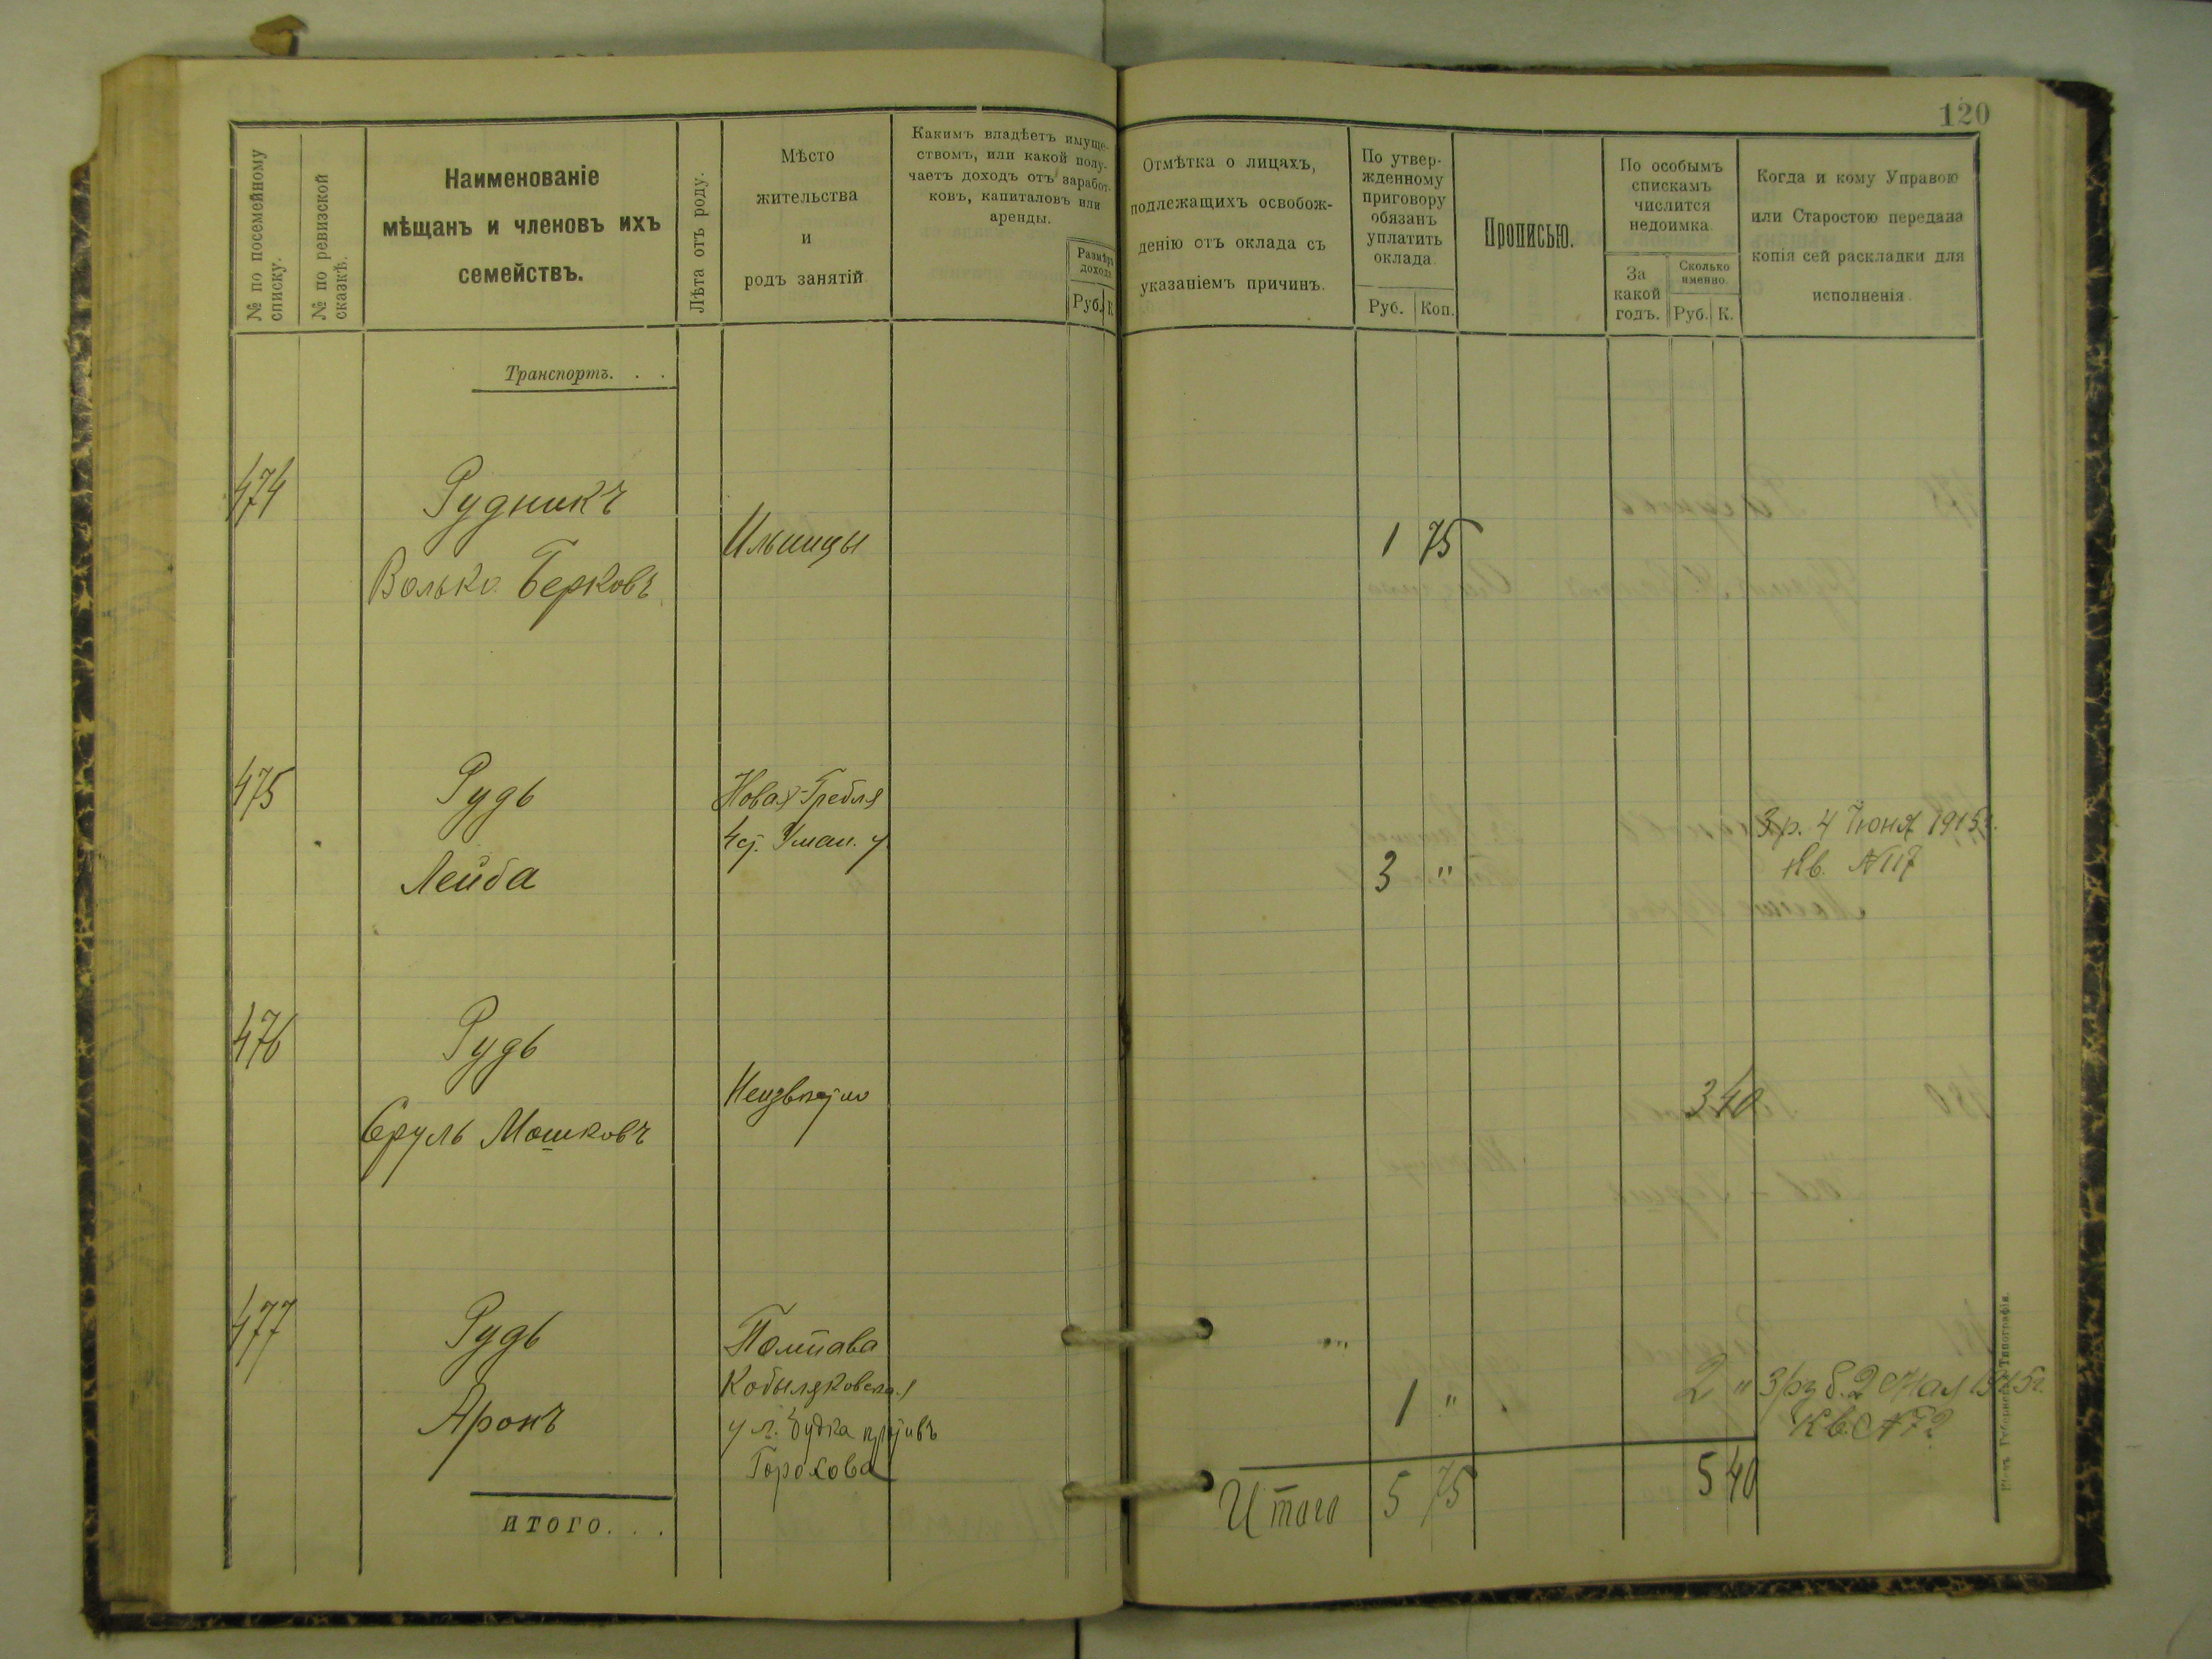 120
№ по посемейному
списку.
№ по ревизской
сказкѣ.
Наименованіе
мѣщанъ и членовъ ихъ
семействъ.
Лѣта отъ роду.
Мѣсто
жительства
и
родъ занятій
Какимъ владѣетъ имуще-
ствомъ, или какой полу-
чаетъ доходъ отъ заработ-
ковъ, капиталовъ или
аренды.
Размѣръ
дохода
Руб. К
Отмѣтка о лицахъ,
подлежащихъ освобож-
денію отъ оклада съ
указаніемъ причинъ.
По утвер-
жденному
приговору
обязанъ
уплатить
оклада
Руб. Коп.
Прописью.
По особымъ
спискамъ
числится
недоимка
За
какой
годъ.
Сколько
именно
Руб. К.
Когда и кому Управою
или Старостою передана
копія сей раскладки для
исполненія
Транспортъ. . .
474 Рудникъ
Волько Берковъ
Ильинцы
1 75
475 Рудь
Лейба
Новая-Гребля
Уман. у
3 "
3 р. 4 Іюня 1915 г.
Кв. № 117
476 Рудь
Сруль Мошковъ
Неизвѣстно
3 40
477 Рудь
Аронъ
Полтава
Кобыляковская
ул. будка противъ
Горохова
1 "
2 "
3 руб. 2 Мая 1915 г.
Кв. № 72
итого. . .
Итого 5 75
5 40